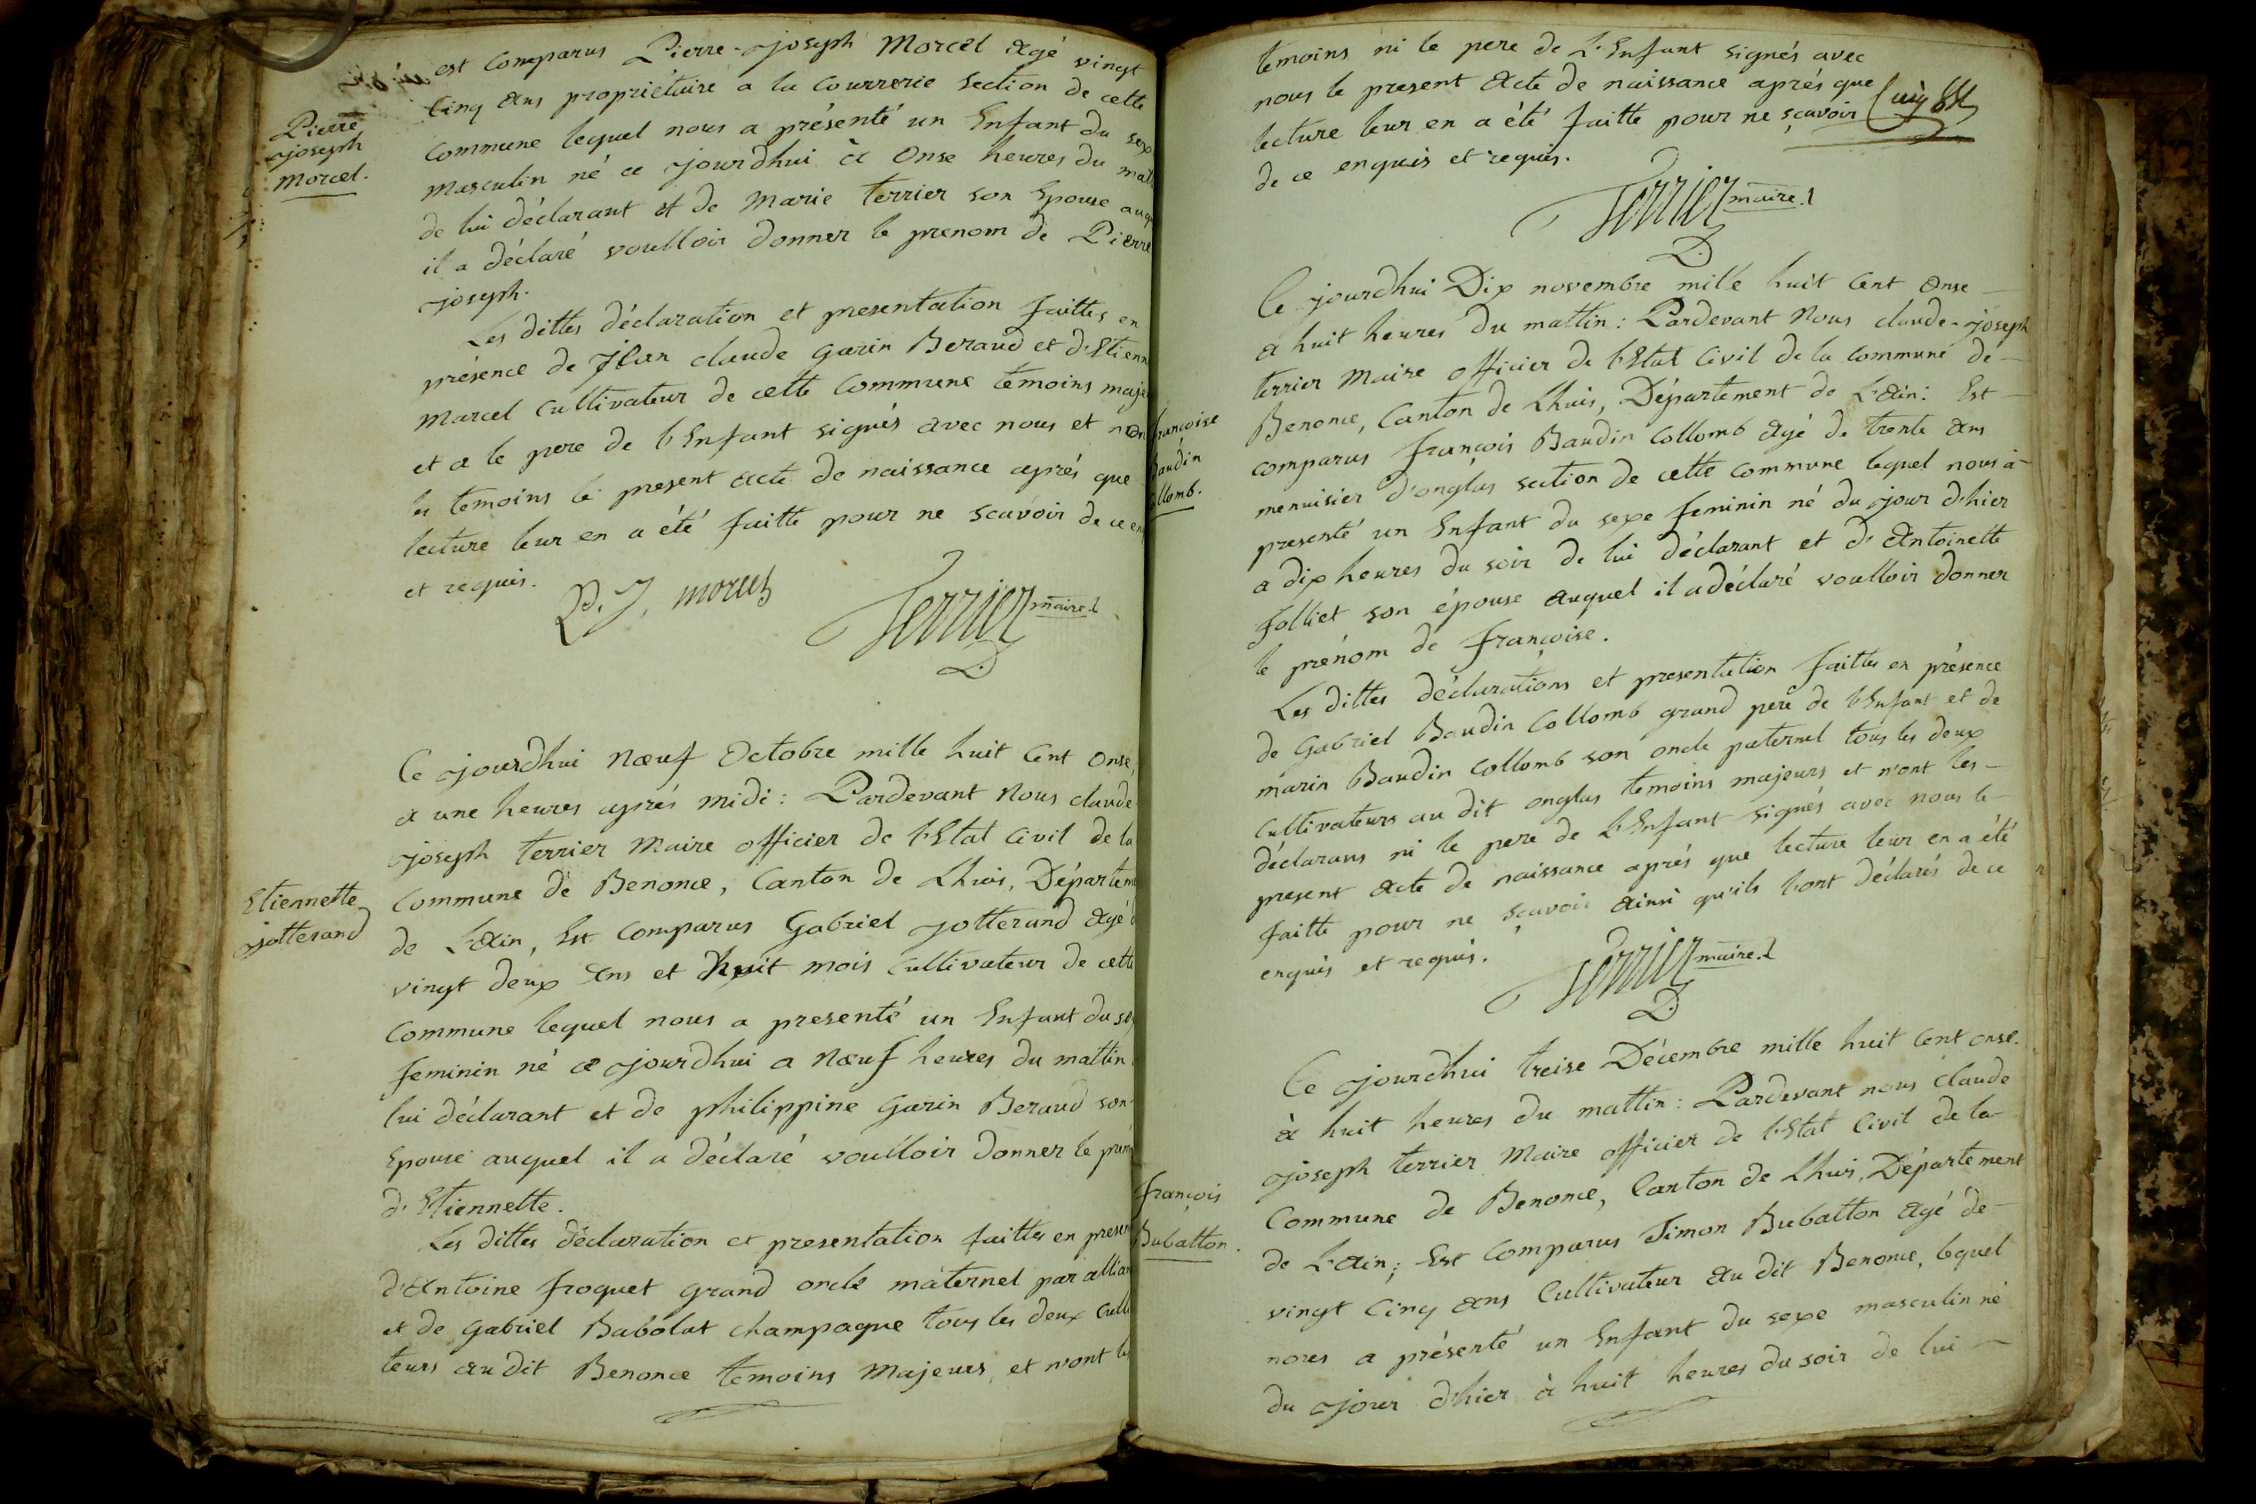 est comparus Pierre-joseph Morcel agé vingt
Cinq ans propriétaire a la Courrerie section de cette
Pierre
joseph
Morcel.
commune lequel nous a présenté un Enfant du sex
masculin né ce jourdhui à Onse heures du mat
de lui déclarant et de Marie terrier son Epouse auq
il a déclaré voulloir donner le prenom de Pierre
joseph.
Les dittes déclaration et presentation faittes en
présence de Jean claude Garin Beraud et d'Etienn
Marcel Cultivateur de cette Commune temoins maje
et a le pere de l'Enfant signés avec nous et non
les temoins le present acte de naissance aprés que
lecture leur en a été faitte pour ne scavoir de ce en
et requis.
P. J. morcel
Terrier maire
Ce jourdhui Nœuf Octobre mille huit Cent Onse,
a une heures aprés midi : Pardevant Nous claude
joseph terrier Maire officier de l'Etat Civil de la
Commune de Benonce, Canton de Lhuis, Départeme
Etiennette
jotterand
de L'Ain, Est Comparus Gabriel jotterand agé
vingt deux ans et huit mois Cultivateur de cette
Commune lequel nous a presenté un Enfant du se
feminin né ce jourdhui a Nœuf heures du mattin
lui déclarant et de philippine Garin Beraud son
Epouse auquel il a déclaré voulloir donner le prén
d'Etiennette.
Les dittes déclaration et presentation faittes en presen
d'Antoine froquet grand oncle maternel par allian
et de Gabriel Babolat champagne tous les deux Culti
teurs au dit Benonce temoins Majeurs, et n'ont le
temoins ni le pere de L'Enfant signés avec
nous le present acte de naissance aprés que
lecture leur en a été faitte pour ne sçavoir
de ce enquis et requis.
Terrier maire
françoise
Baudin
Collomb.
Ce jourdhui Dix novembre mille huit Cent Onse
a huit heures du mattin : Pardevant Nous claude-joseph
terrier Maire officier de l'Etat Civil de la Commune de
Benonce, Canton de Lhuis, Département de L'Ain : Est
comparus françois Baudin Collomb agé de trente ans
menuisier d'onglas section de cette commune lequel nous a
presenté un Enfant du sexe feminin né du jour d'hier
a dix heures du soir de lui déclarant et d'Antoinette
folliet son épouse auquel il a déclaré voulloir donner
le prénom de françoise.
Les dittes déclarations et presentation faittes en présence
de Gabriel Baudin Collomb grand pere de l'Enfant et de
marin Baudin Collomb son oncle paternel tous les deux
Cultivateurs au dit onglas temoins majeurs et n'ont les
déclarans ni le pere de L'Enfant signés avec nous le
present acte de naissance aprés que lecture leur en a été
faitte pour ne sçavoir ainsi qu'ils l'ont déclarés de ce
enquis et requis.
Terrier maire
Ce jourdhui treise Décembre mille huit Cent onse.
à huit heures du mattin : Pardevant nous claude
joseph terrier Maire officier de l'Etat Civil de la
Commune de Benonce, Canton de Lhuis, Département
françois
Bubatton.
de L'Ain ; Est Comparus Simon Bubatton agé de
vingt Cinq ans Cultivateur au dit Benonce, lequel
nous a présenté un Enfant du sexe masculin né
du jour d'hier à huit heures du soir de lui